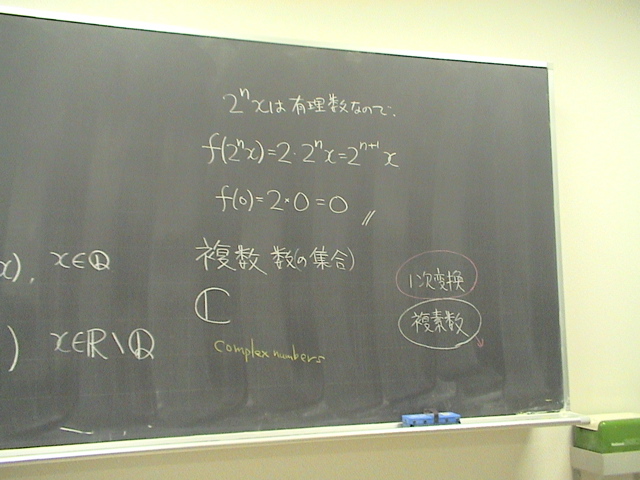 2ⁿxは有理数なので.
f(2ⁿx)=2・2ⁿx=2ⁿ⁺¹x
f(0)=2×0=0 //
x), x∈ℚ
) x∈ℝ\ℚ
複数数(の集合)
ℂ
complex numbers
1次変換
複素数